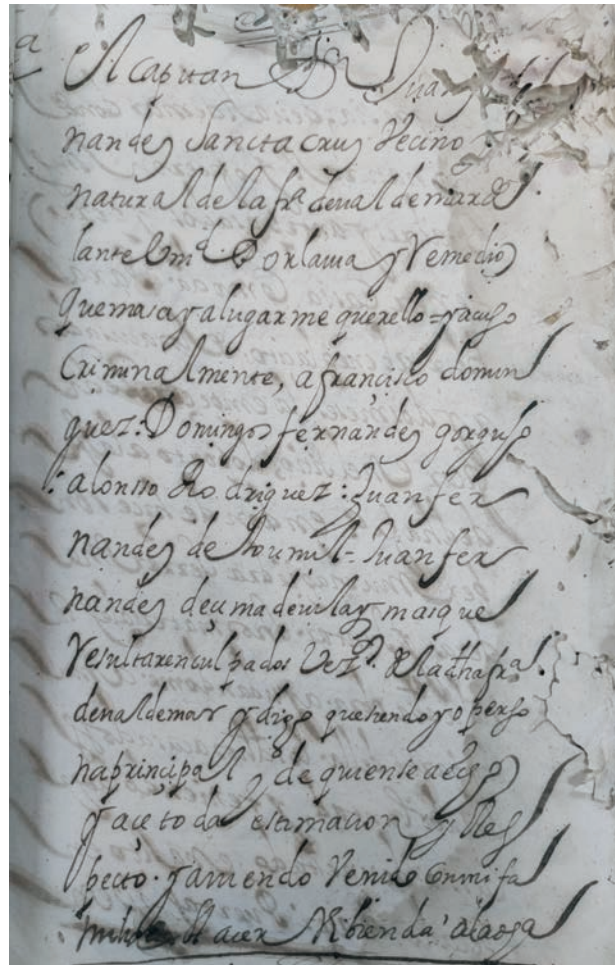 El Capitan Dn Juan
nandes Sancta Cruz Vecino
natural de la fra de ualdemar de
lante Vmd Por la uia y Remedio
que mas aya lugar me querello = y acuso
Criminalmente, a françisco domin
guez: Domingos fernandes gorguso
: alonsso Rodriguez: Juan fer
nandes de = Juan fer
nandes de uilar y mas que
Resultaren culpados Vezos de la dha fra
de ualdemar y digo que siendo yo perso
na prinçipal y de quien se a echo
y açe toda estimaçion y Res
pecto. y auiendo Venido Con mi fa
milia a acer Vibienda a la casa